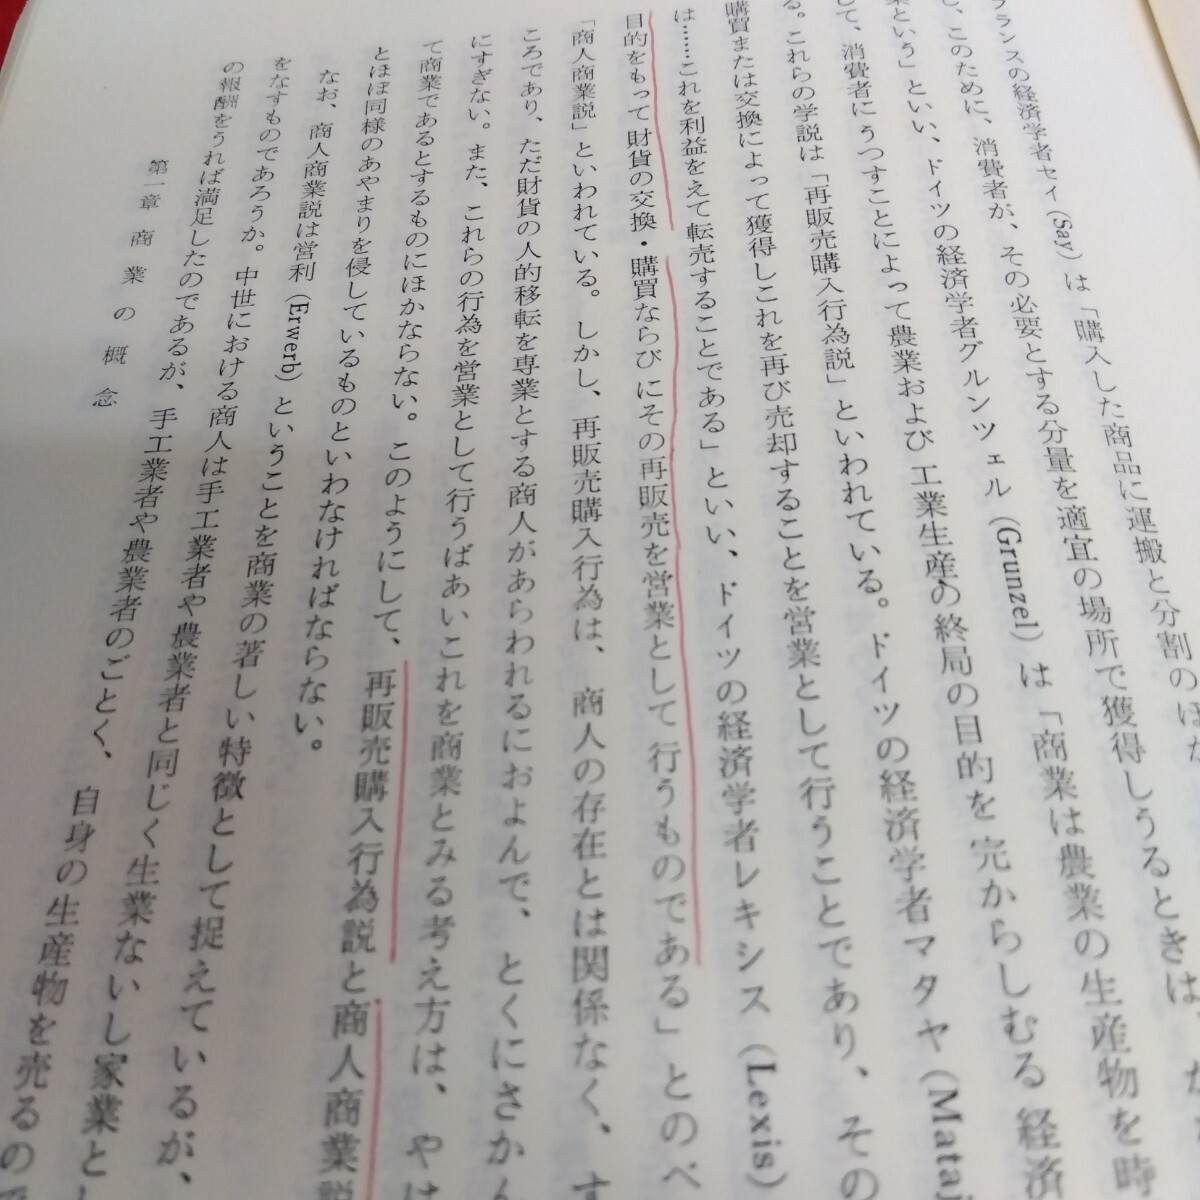 フランスの経済学者セイ(Say)は「購入した商品に運搬と分割のほか
し、このために、消費者が、その必要とする分量を適宜の場所で獲得しうるときは、
業という」といい、ドイツの経済学者グルンツェル(Grunzel)は「商業は農業の生産物を時
して、消費者にうつすことによって農業および工業生産の終局の目的を完からしむる経済
る。これらの学説は「再販売購入行為説」といわれている。ドイツの経済学者マタヤ(Mataj
購買または交換によって獲得しこれを再び売却することを営業として行うことであり、その
は……これを利益をえて転売することである」といい、ドイツの経済学者レキシス(Lexis)
目的をもって財貨の交換・購買ならびにその再販売を営業として行うものである」とのべ
「商人商業説」といわれている。しかし、再販売購入行為は、商人の存在とは関係なく、す
ころであり、ただ財貨の人的移転を専業とする商人があらわれるにおよんで、とくにさかん
にすぎない。また、これらの行為を営業として行うばあいこれを商業とみる考え方は、やは
て商業であるとするものにほかならない。このようにして、再販売購入行為説と商人商業説
とほぼ同様のあやまりを侵しているものといわなければならない。
なお、商人商業説は営利(Erwerb)ということを商業の著しい特徴として捉えているが、
をなすものであろうか。中世における商人は手工業者や農業者と同じく生業ないし家業とし
の報酬をうれば満足したのであるが、手工業者や農業者のごとく、自身の生産物を売るので
第一章 商業の概念